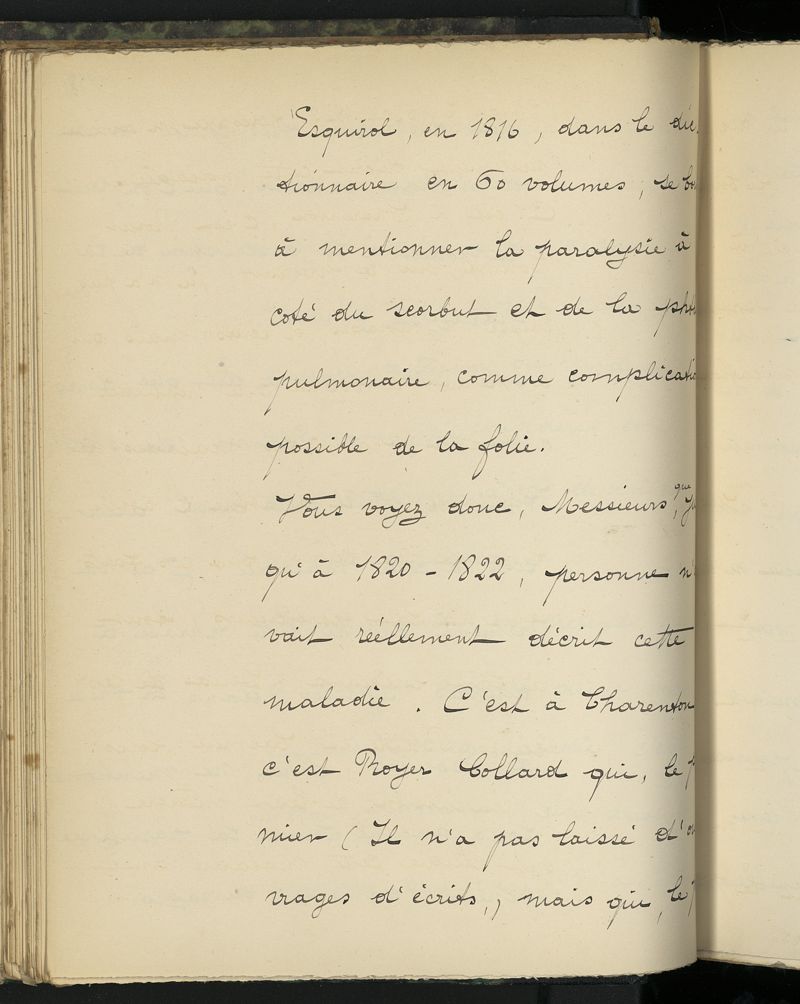 Esquirol, en 1816, dans le dic
tionnaire en 60 volumes, se bo
à mentionner la paralysie à
coté du scorbut et de la pht
pulmonaire, comme complicatio
possible de la folie.
Vous voyez donc, Messieurs, que ju
qu'à 1820 - 1822, personne n'
vait réellement décrit cette
maladie. C'est à Charenton
c'est Royer Collard qui, le p
mier (Il n'a pas laissé d'ou
vrages d'écrits,) mais qui, le p